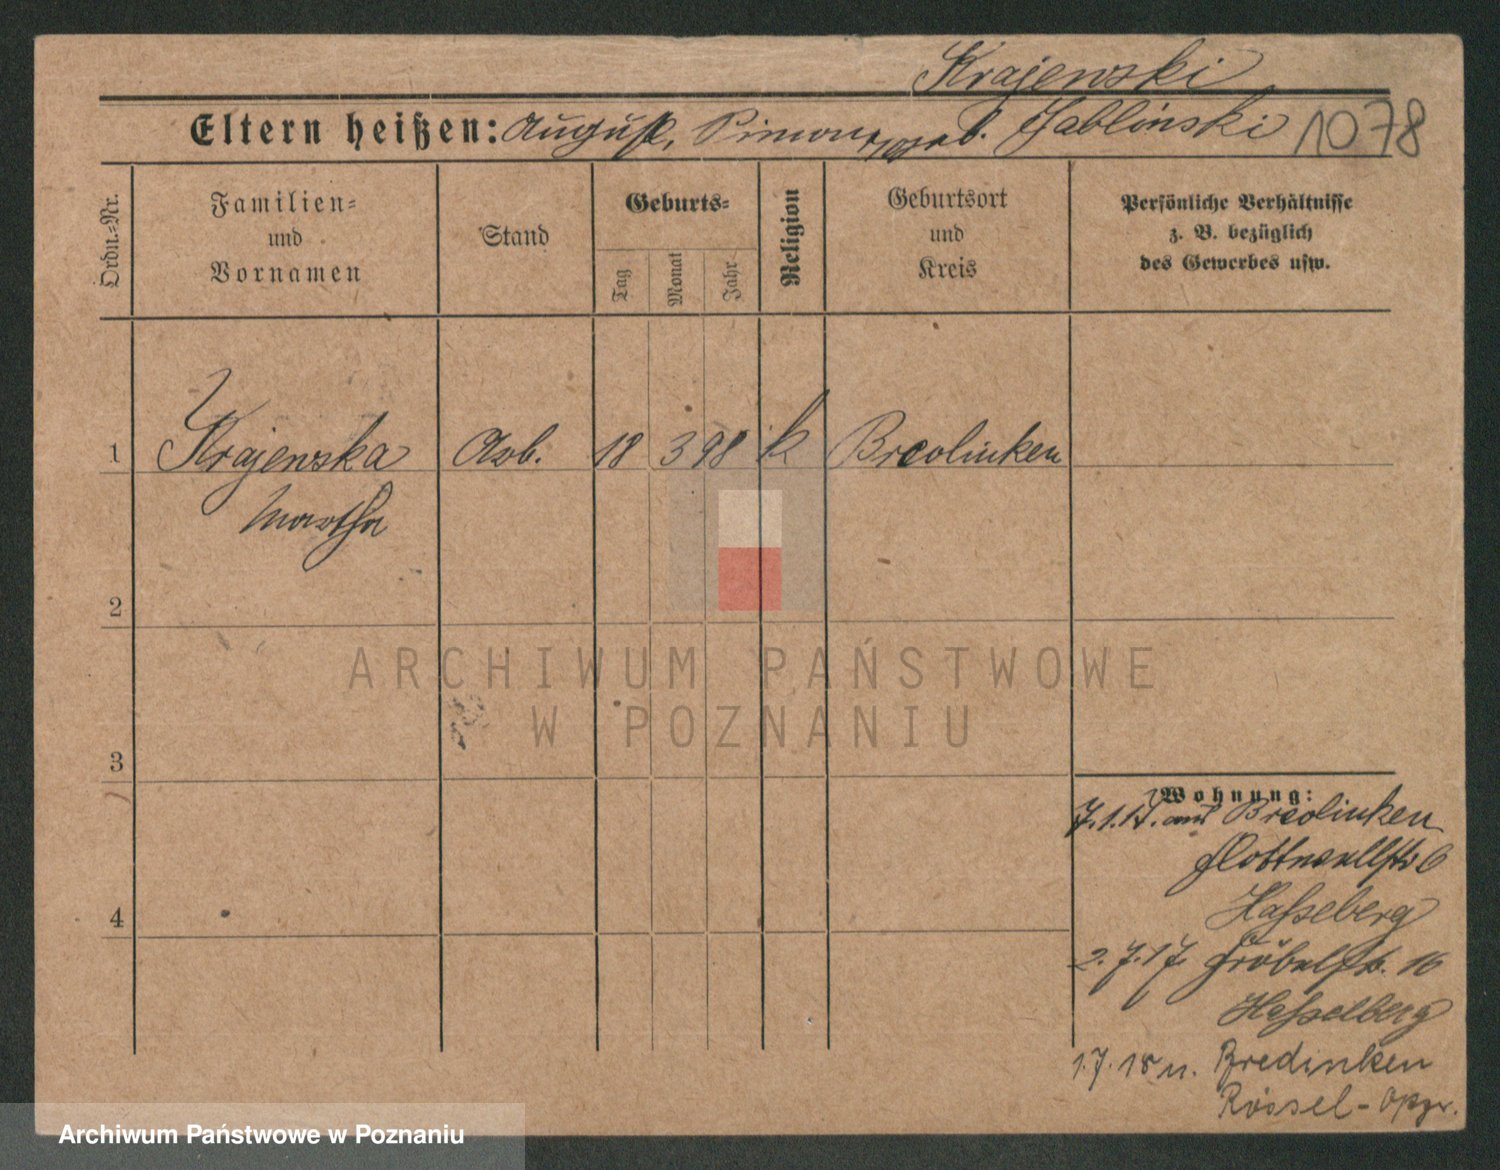 Krajewski
Eltern heißen: August, geb. Jablinski 1078
Ordn.-Nr.
Familien-
und
Vornamen
Stand
Geburts-
Tag
Monat
Jahr
Religion
Geburtsort
und
Kreis
Persönliche Verhältnisse
z. B. bezüglich
des Gewerbes usw.
1 Krajewska Arb. 18 3 98 k Bredinken
Martha
2
ARCHIWUM PAŃSTWOWE
W POZNANIU
3
Wohnung:
7.1.17. aus Bredinken
Gottwallstr 6
Hasselberg
2.7.17 Gröbelstr. 16
Hasselberg
1.7.18 n. Bredinken
Rössel-Opr.
4
Archiwum Państwowe w Poznaniu